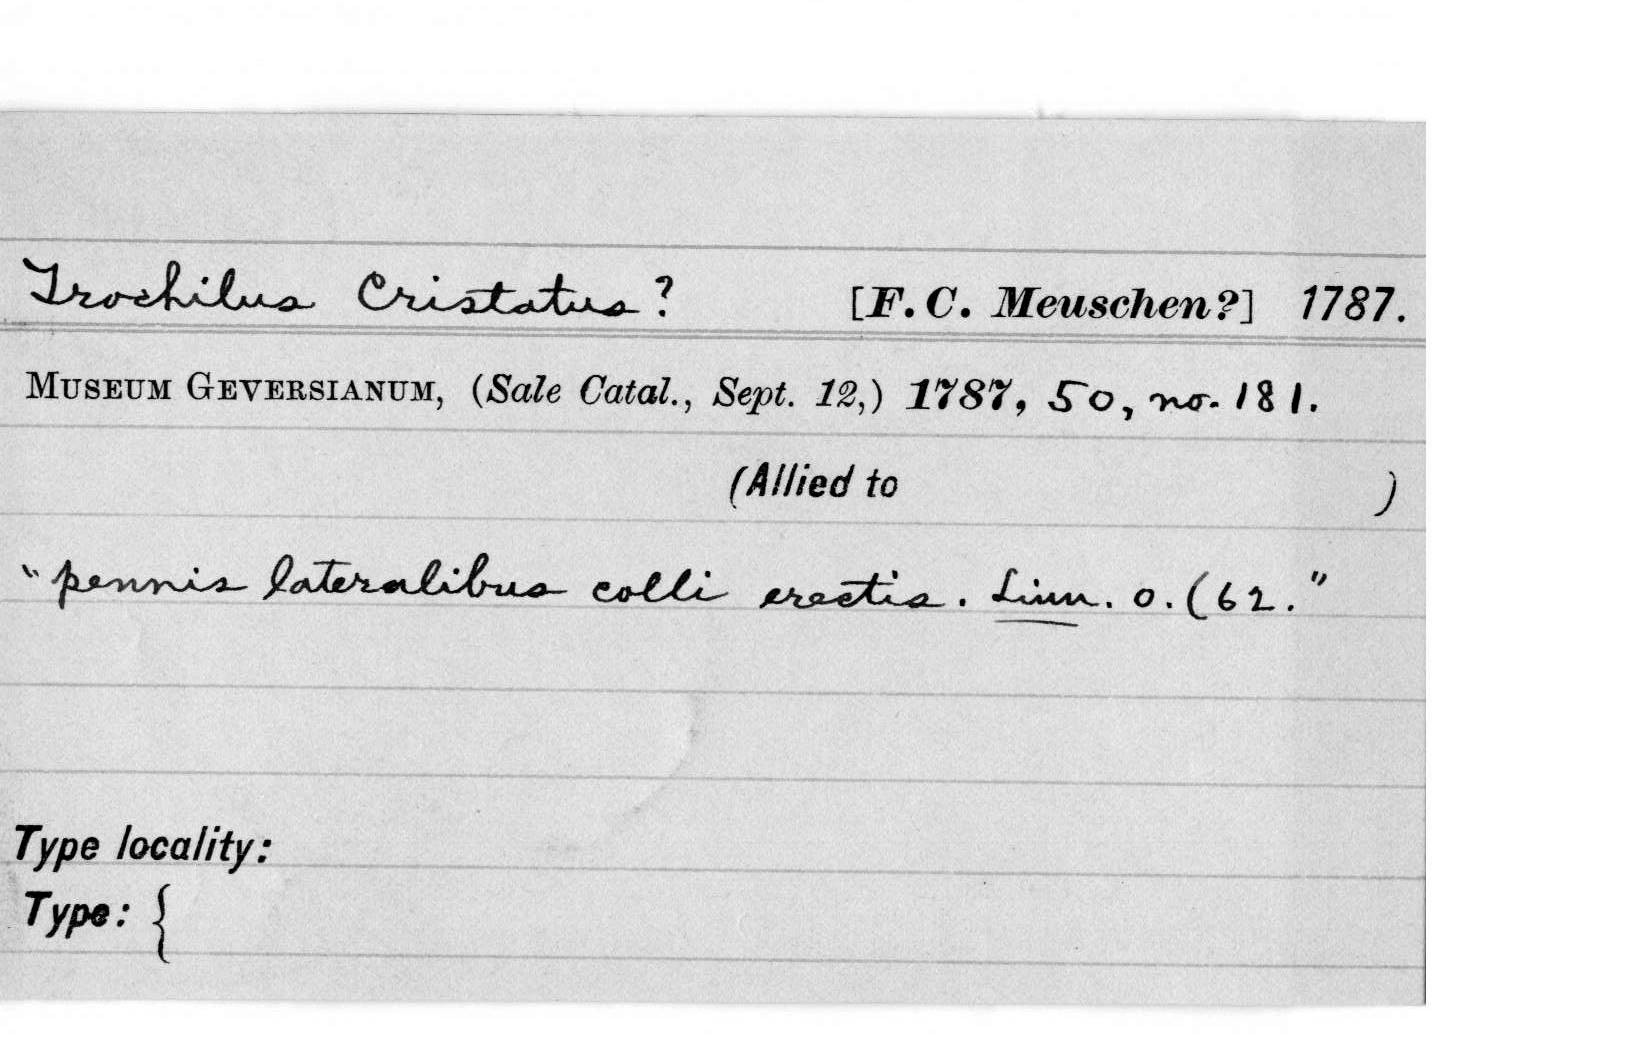 Trochilus Cristatus? [F. C. Meuschen?] 1787.
Museum Geversianum, (Sale Catal., Sept. 12,) 1787, 50, no. 181.
(Allied to )
"pennis lateralibus colli erectis. Linn. o. (62."
Type locality:
Type: {